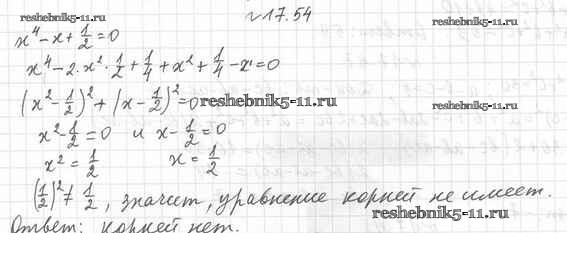 reshebnik5-11.ru №17.54 reshebnik5-11.ru
x⁴-x+1/2=0
x⁴-2·x²·1/2+1/4+x²+1/4-x=0
(x²-1/2)²+(x-1/2)²=0 reshebnik5-11.ru reshebnik5-11.ru
x²-1/2=0 и x-1/2=0
x²=1/2 x=1/2
(1/2)²≠1/2, значит, уравнение корней не имеет.
reshebnik5-11.ru
Ответ: корней нет.